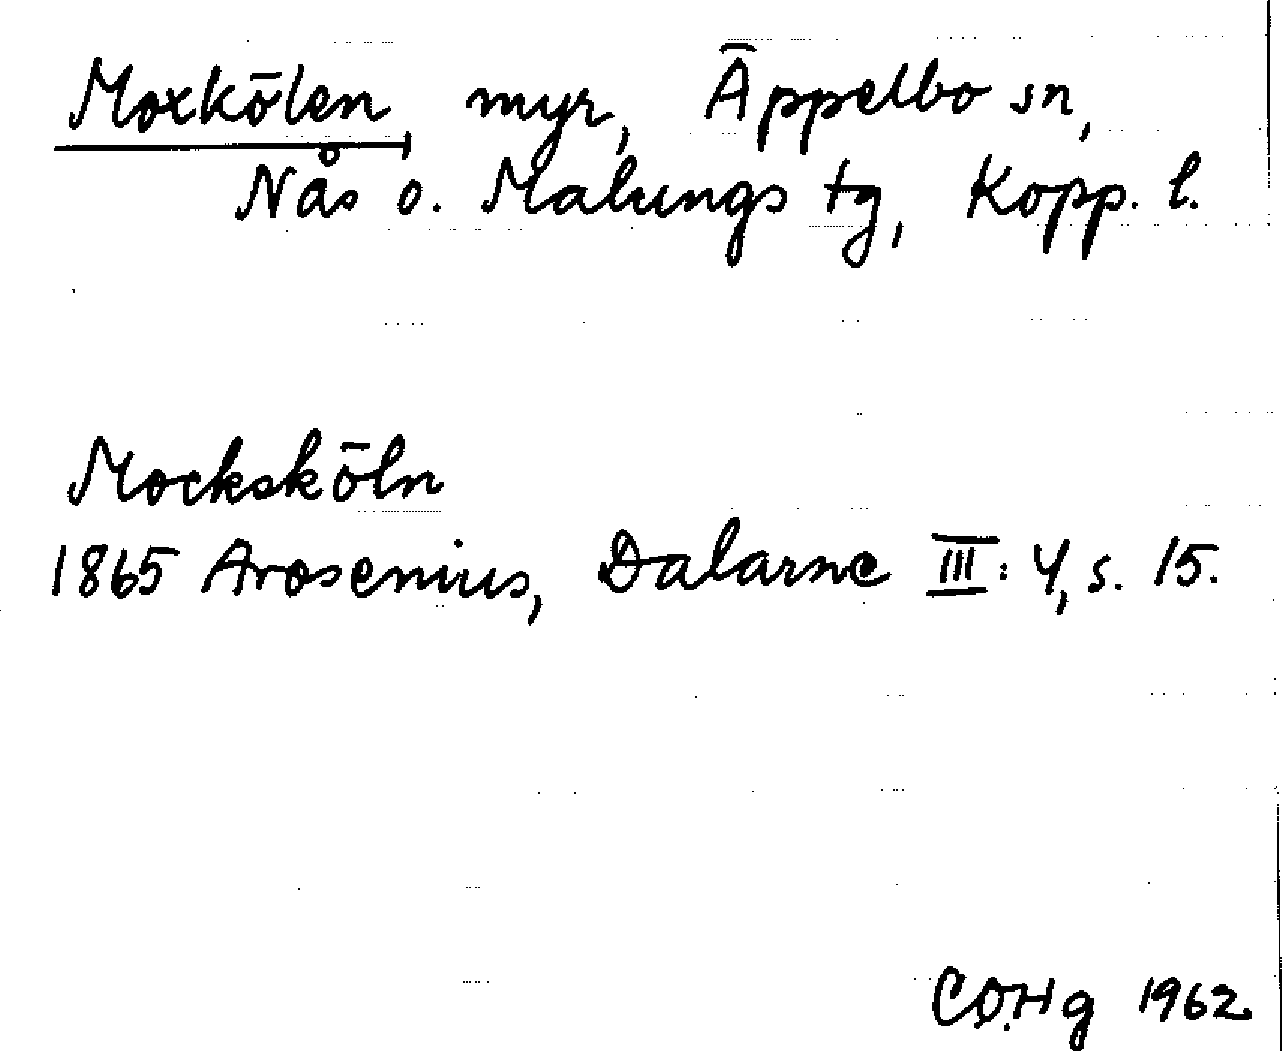 Moxkölen, myr, Äppelbo sn,
Nås o. Malungs tg, Kopp. l.
Mocksköln
1865 Arosenius, Dalarne III: 4, s. 15.
C.O.Hg 1962